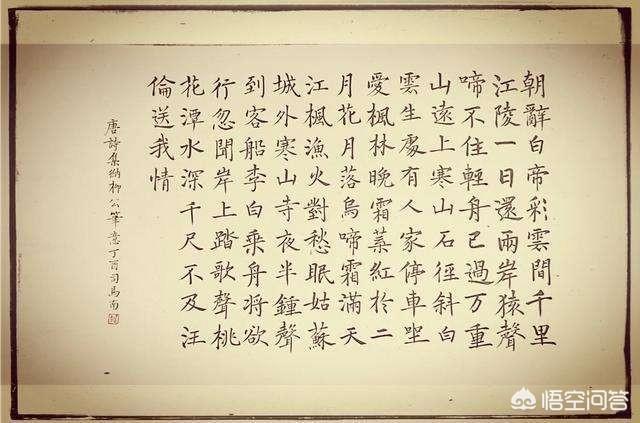 朝辭白帝彩雲間千里
江陵一日還兩岸猿聲
啼不住輕舟已過万重
山遠上寒山石徑斜白
雲生處有人家停車坐
愛楓林晚霜葉紅於二
月花月落烏啼霜滿天
江楓漁火對愁眠姑蘇
城外寒山寺夜半鍾聲
到客船李白乘舟將欲
行忽聞岸上踏歌聲桃
花潭水深千尺不及汪
倫送我情
唐詩集納柳公筆意丁酉司馬南
悟空问答